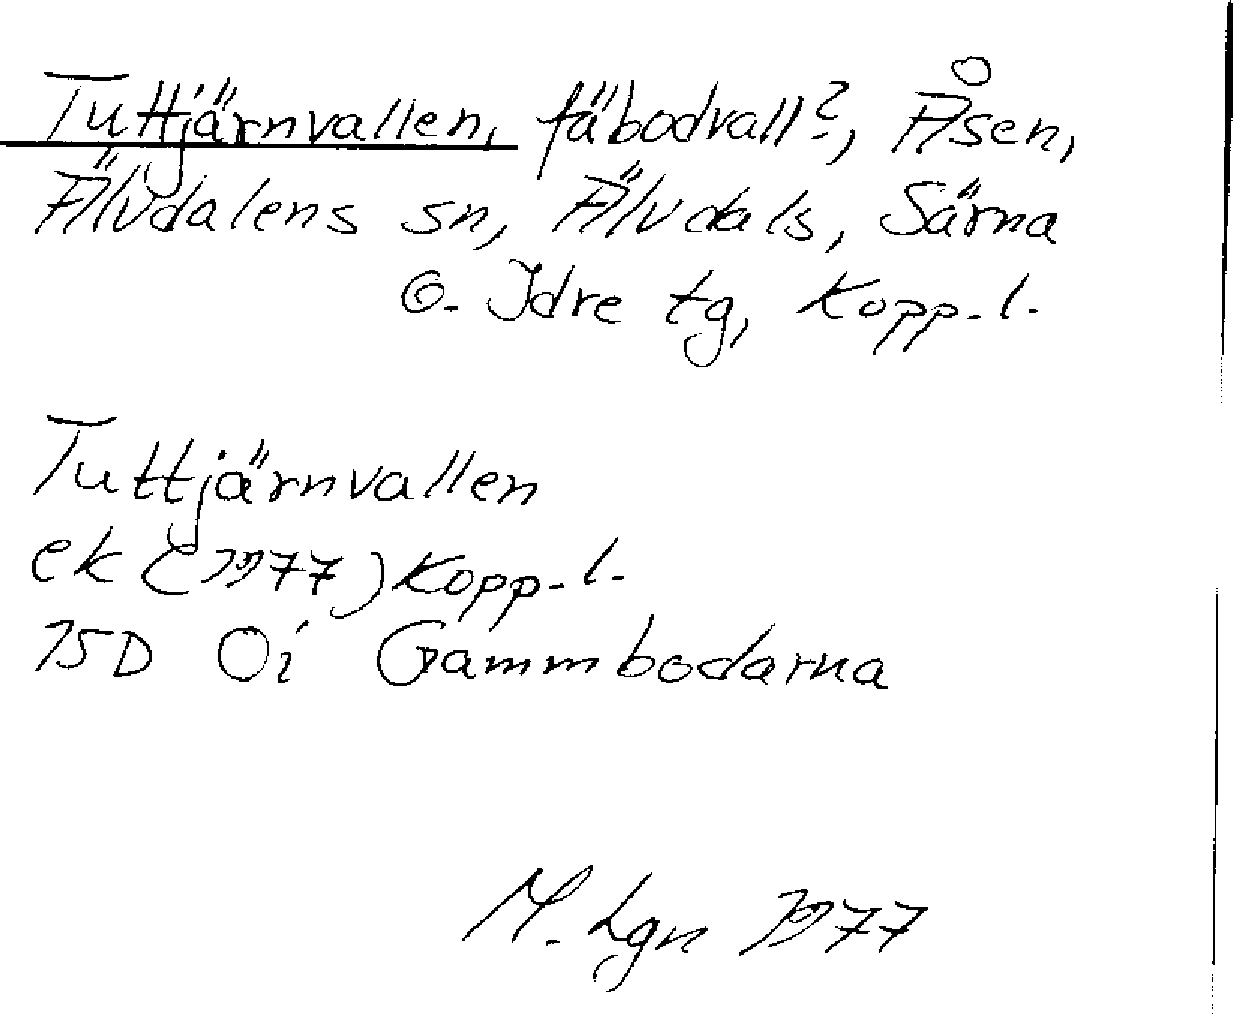 Tuttjärnvallen, fäbodvall?, Åsen,
Älvdalens sn, Älvdals, Särna
o. Idre tg, Kopp. l.
Tuttjärnvallen
ek (1977) Kopp. l.
15D 0i Gammbodarna
M. Lgn 1977